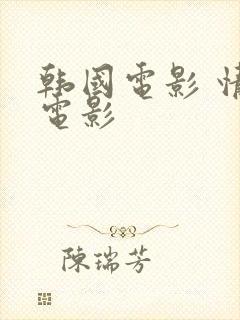 韩國電影 情
電影
陳瑞芳